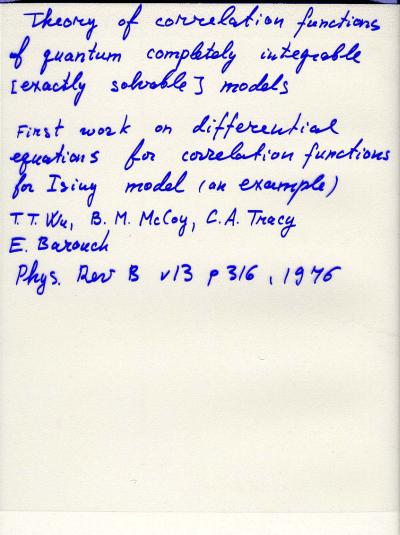 Theory of correlation functions
of quantum completely integrable
[exactly solvable] models
First work on differential
equations for correlation functions
for Ising model (an example)
T.T. Wu, B. M. McCoy, C.A. Tracy
E. Barouch
Phys. Rev B v13 p 316, 1976